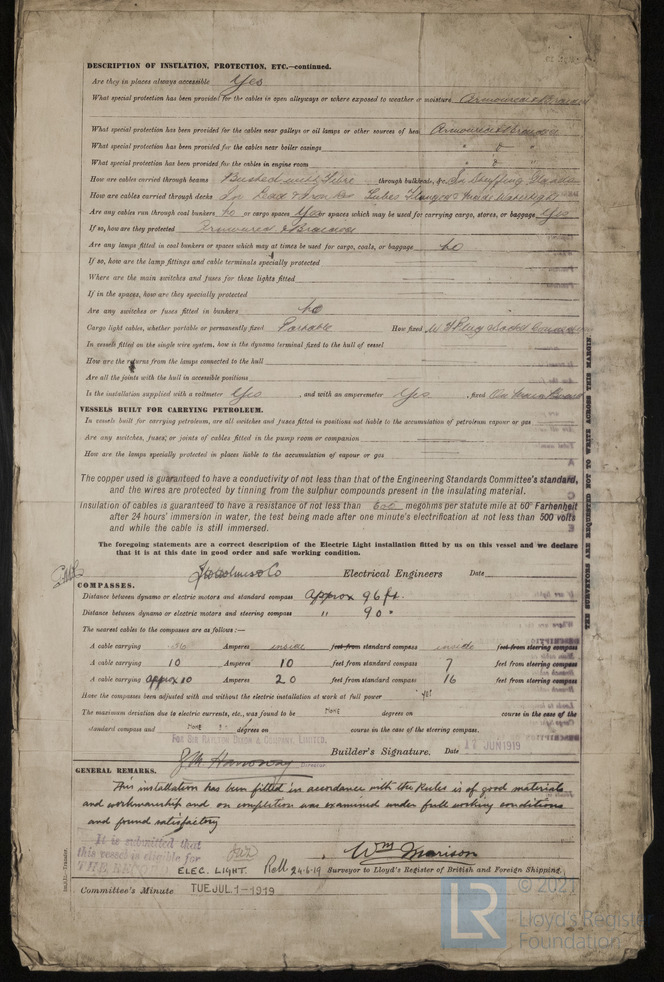 DESCRIPTION OF INSULATION, PROTECTION, ETC.—continued.
Are they in places always accessible Yes
What special protection has been provided for the cables in open alleyways or where exposed to weather or moisture Armoured & Braided
What special protection has been provided for the cables near galleys or oil lamps or other sources of heat Armoured & Braided
What special protection has been provided for the cables near boiler casings " & "
What special protection has been provided for the cables in engine room " & "
How are cables carried through beams Bushed with Fibre through bulkheads, &c. In Stuffing Glands
How are cables carried through decks In Lead & Iron Tubes Flanged & made Watertight
Are any cables run through coal bunkers No or cargo spaces Yes or spaces which may be used for carrying cargo, stores, or baggage Yes
If so, how are they protected Armoured & Braided
Are any lamps fitted in coal bunkers or spaces which may at times be used for cargo, coals, or baggage No
If so, how are the lamp fittings and cable terminals specially protected
Where are the main switches and fuses for these lights fitted
If in the spaces, how are they specially protected
Are any switches or fuses fitted in bunkers No
Cargo light cables, whether portable or permanently fixed Portable How fixed Plug
In vessels fitted on the single wire system, how is the dynamo terminal fixed to the hull of vessel
How are the returns from the lamps connected to the hull
Are all the joints with the hull in accessible positions
Is the installation supplied with a voltmeter Yes, and with an amperemeter Yes, fixed On Main Board
VESSELS BUILT FOR CARRYING PETROLEUM.
In vessels built for carrying petroleum, are all switches and fuses fitted in positions not liable to the accumulation of petroleum vapour or gas
Are any switches, fuses, or joints of cables fitted in the pump room or companion
How are the lamps specially protected in places liable to the accumulation of vapour or gas
The copper used is guaranteed to have a conductivity of not less than that of the Engineering Standards Committee's standard,
and the wires are protected by tinning from the sulphur compounds present in the insulating material.
Insulation of cables is guaranteed to have a resistance of not less than 600 megohms per statute mile at 60° Farhenheit
after 24 hours' immersion in water, the test being made after one minute's electrification at not less than 500 volts
and while the cable is still immersed.
The foregoing statements are a correct description of the Electric Light installation fitted by us on this vessel and we declare
that it is at this date in good order and safe working condition.
J H Holmes & Co Electrical Engineers Date
COMPASSES.
Distance between dynamo or electric motors and standard compass Approx 96 ft.
Distance between dynamo or electric motors and steering compass " 90 "
The nearest cables to the compasses are as follows:—
A cable carrying .36 Amperes inside feet from standard compass inside feet from steering compass
A cable carrying 10 Amperes 10 feet from standard compass 7 feet from steering compass
A cable carrying approx 10 Amperes 20 feet from standard compass 16 feet from steering compass
Have the compasses been adjusted with and without the electric installation at work at full power Yes
The maximum deviation due to electric currents, etc., was found to be None degrees on course in the case of the
standard compass and None degrees on course in the case of the steering compass.
FOR SIR RAYLTON DIXON & COMPANY, LIMITED.
Builder's Signature. Date 17 JUN 1919
GENERAL REMARKS.
This installation has been fitted in accordance with the Rules is of good materials
and workmanship and on completion was examined under full working conditions
and found satisfactory
It is submitted that
this vessel is eligible for
THE RECORD
ELEC. LIGHT. 24-6-19
Wm Morison
Surveyor to Lloyd's Register of British and Foreign Shipping.
Committee's Minute TUE JUL. 1-1919
THE SURVEYORS ARE REQUESTED NOT TO WRITE ACROSS THIS MARGIN.
LR
© 2021
Lloyd's Register
Foundation